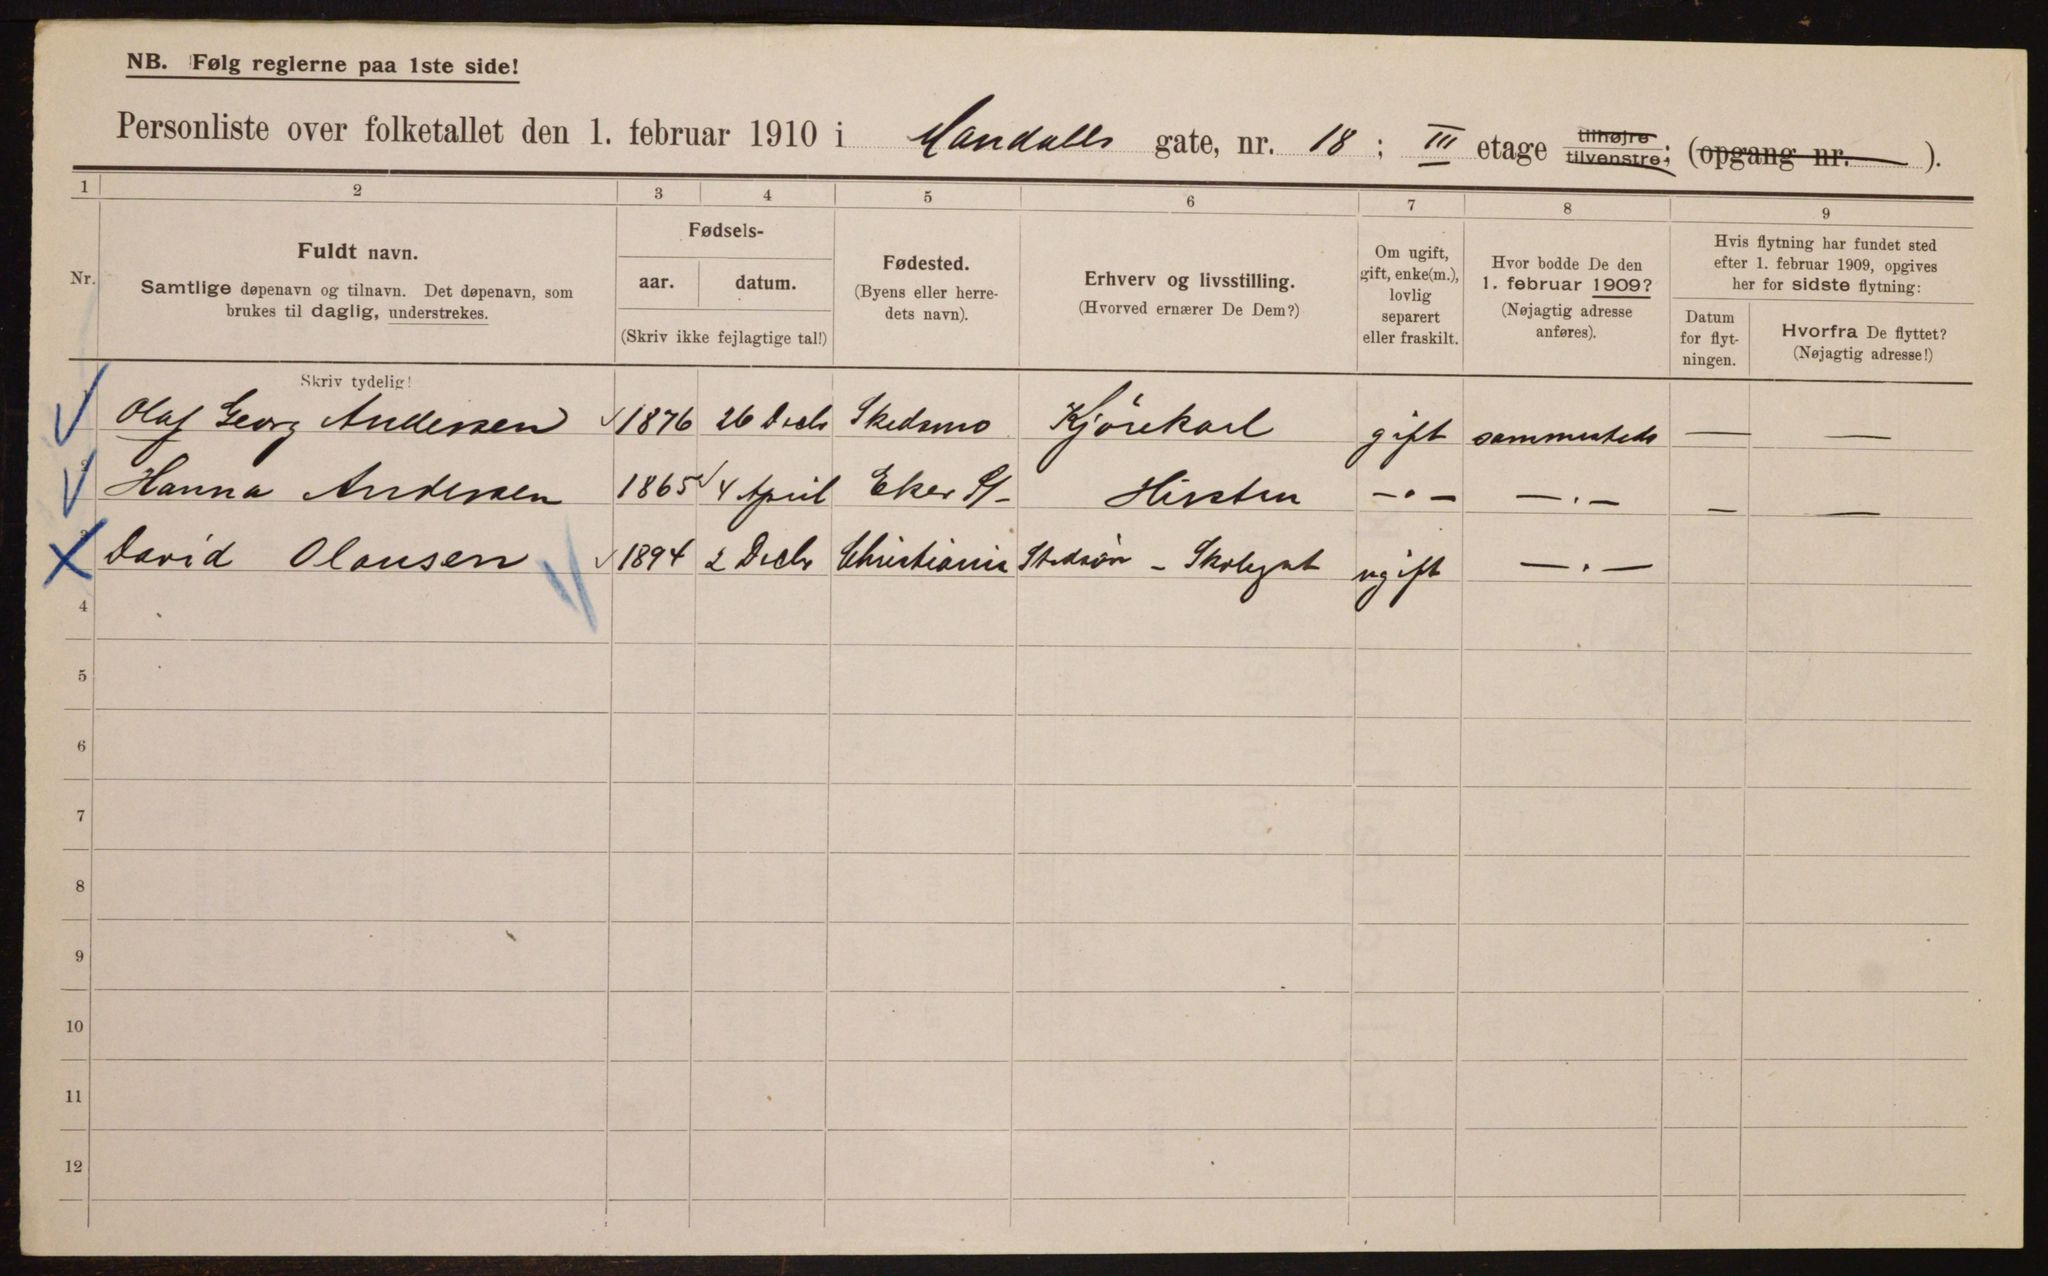 NB. Følg reglerne paa 1ste side!
Personliste over folketallet den 1. februar 1910 i Mandalls gate, nr. 18 ; III etage tilhøjre tilvenstre; (opgang nr. ).
1 2 3 4 5 6 7 8 9
Nr.
Fuldt navn.
Samtlige døpenavn og tilnavn. Det døpenavn, som
brukes til daglig, understrekes.
Fødsels-
aar. datum.
(Skriv ikke fejlagtige tal!)
Fødested.
(Byens eller herre-
dets navn).
Erhverv og livsstilling.
(Hvorved ernærer De Dem?)
Om ugift,
gift, enke(m.),
lovlig
separert
eller fraskilt.
Hvor bodde De den
1. februar 1909?
(Nøjagtig adresse
anføres).
Hvis flytning har fundet sted
efter 1. februar 1909, opgives
her for sidste flytning:
Datum
for flyt-
ningen.
Hvorfra De flyttet?
(Nøjagtig adresse!)
Skriv tydelig!
Olaf Georg Andersen 1876 26 Decbr Skedsmo Kjørekarl gift sammesteds — —
Hanna Andersen 1865 4 April Eker Hustru —·— —·— — —
3 David Olausen 1894 2 Decbr Christiania Stedsøn - Skolegut ugift —·—
4
5
6
7
8
9
10
11
12